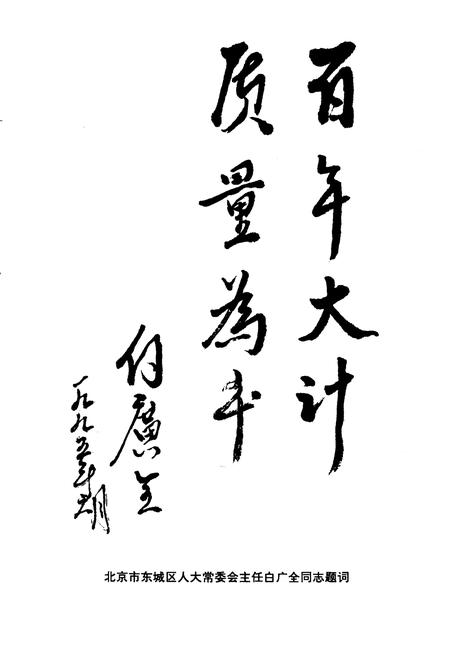 百年大计
质量為本
廣全
一九九五年 月
北京市东城区人大常委会主任白广全同志题词